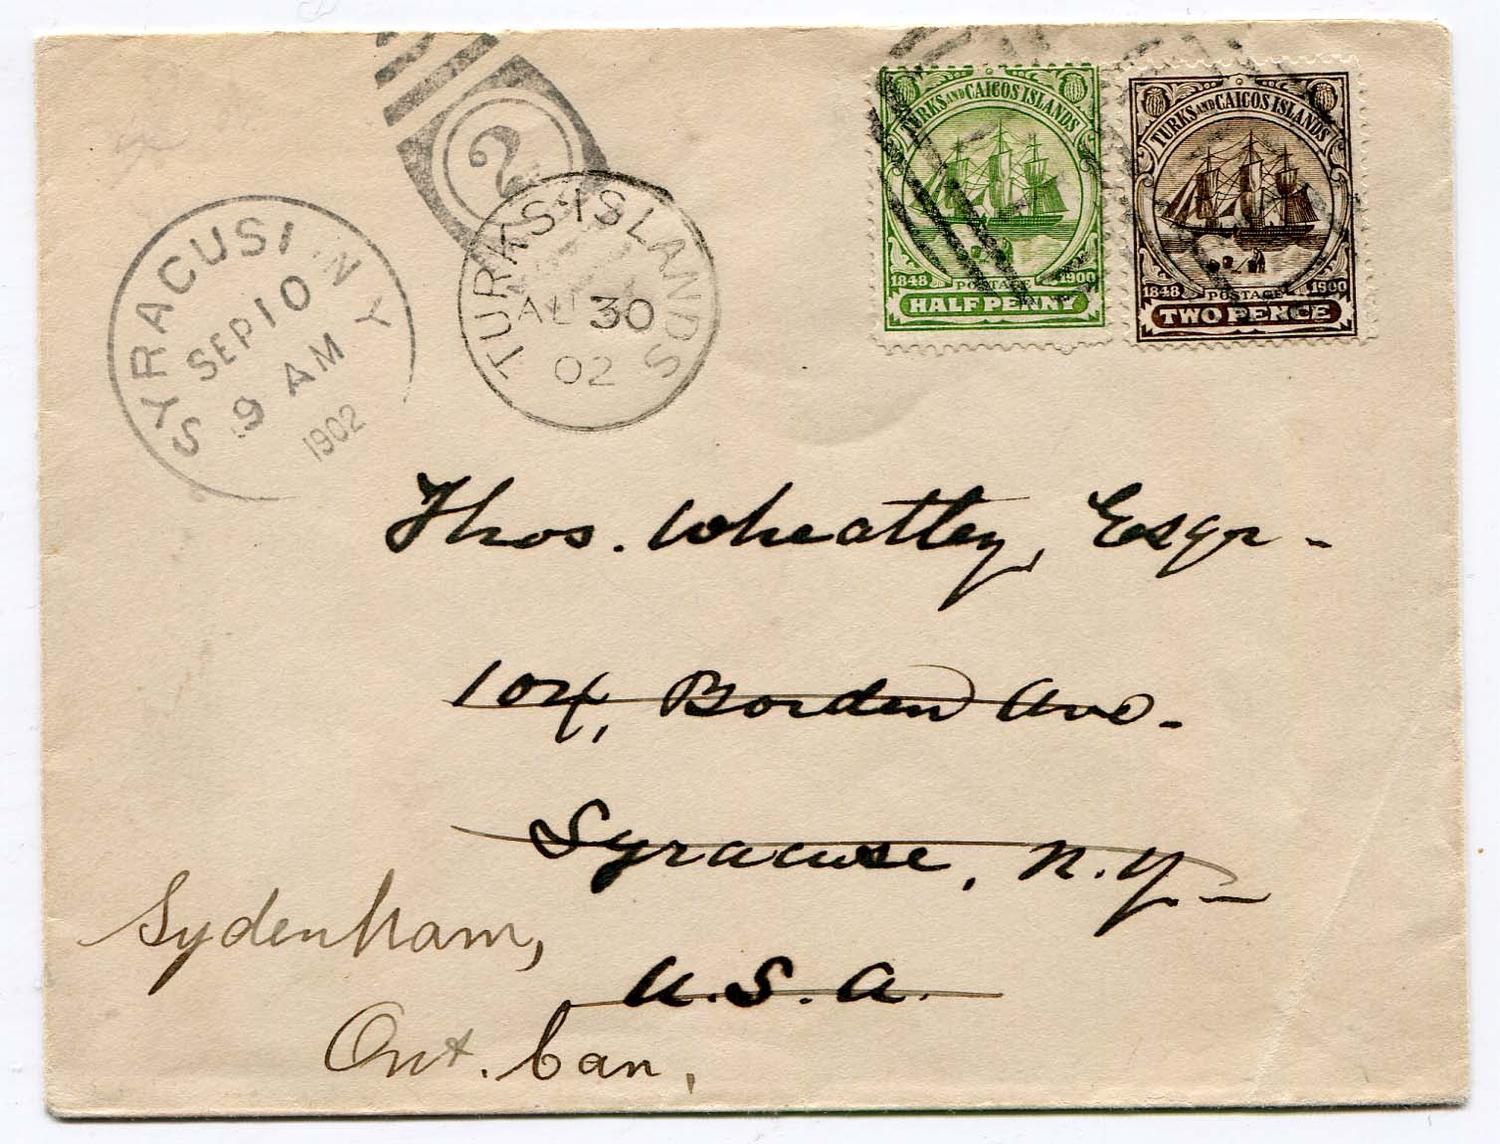 2
TURKS-ISLANDS
AU 30
02
SYRACUSE N Y
SEP 10
9 AM
1902
TURKS AND CAICOS ISLANDS
1848 POSTAGE 1900
HALFPENNY
TURKS AND CAICOS ISLANDS
1848 POSTAGE 1900
TWO PENCE
Thos. Wheatley, Esqr-
104, Borden Ave-
Syracuse, N.Y-
U.S.A.
Sydenham,
Ont. Can.